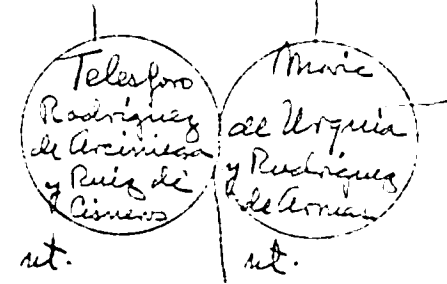 Telesforo
Rodríguez
de Arciniega
y Ruiz de
Cisneros
nt.
Maria
de Urquía
y Rodríguez
de Armas
nt.